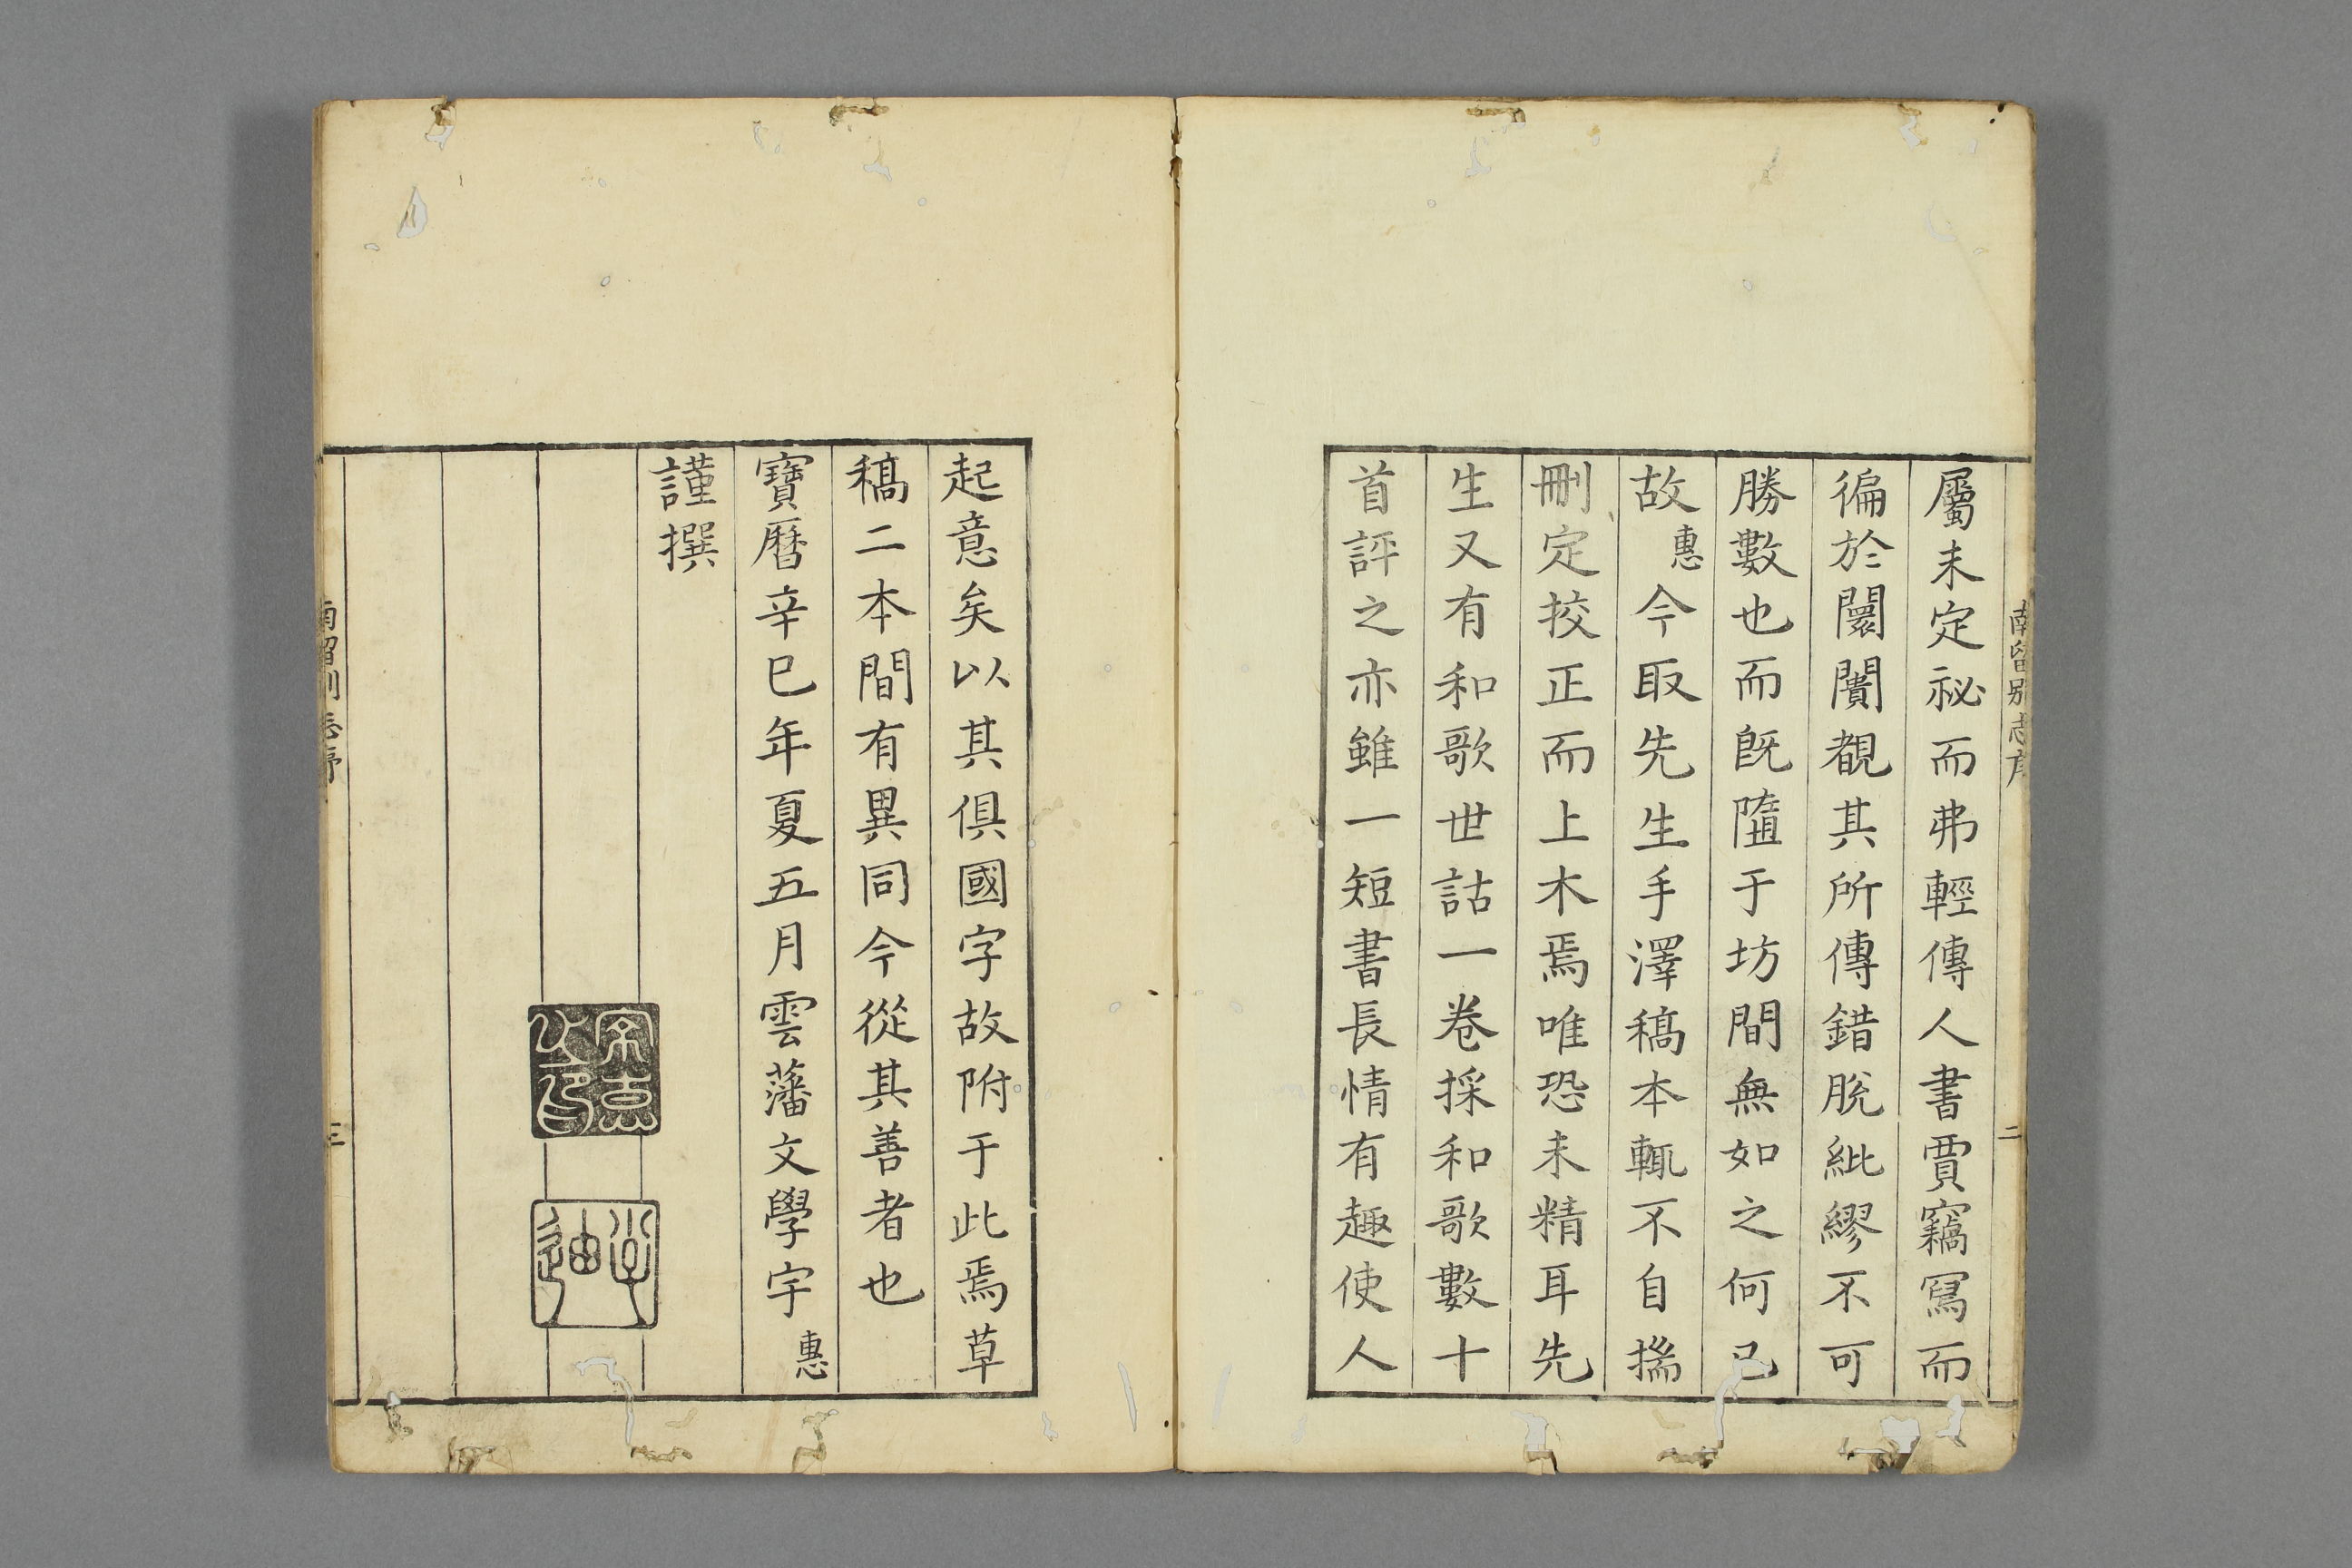 屬未定祕而弗輕傳人書賈竊寫而
徧於闤闠覩其所傳錯脫紕繆不可
勝數也而既墮于坊間無如之何已
故惠今取先生手澤稿本輒不自揣
刪定挍正而上木焉唯恐未精耳先
生又有和歌世詁一卷採和歌數十
首評之亦雖一短書長情有趣使人
南留別志序
二
起意矣以其俱國字故附于此焉草
稿二本間有異同今從其善者也
寶曆辛巳年夏五月雲藩文學宇惠
謹撰
南留別志序
三